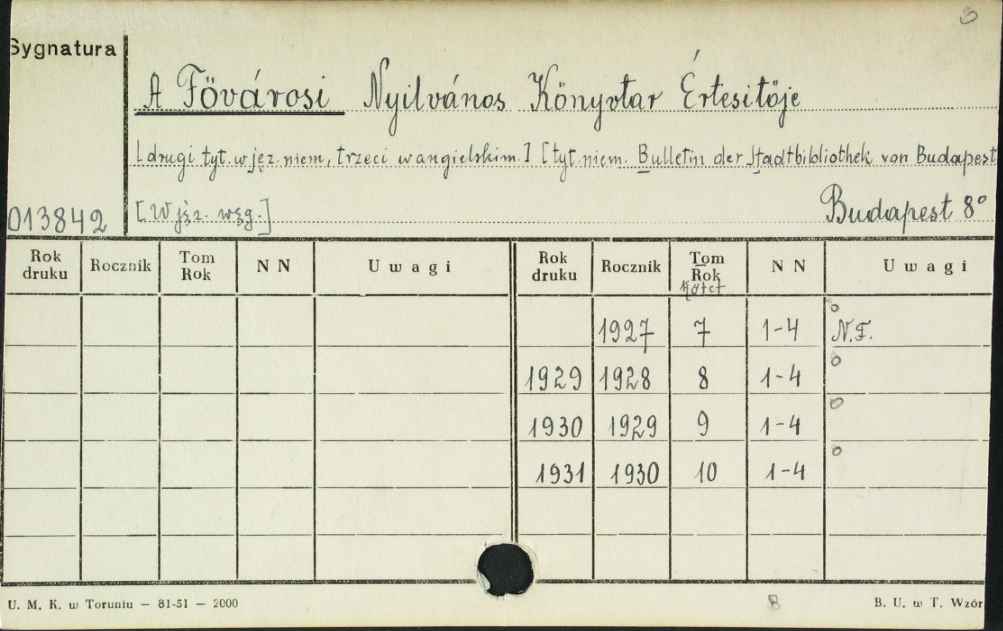 Sygnatura
A Fövárosi Nyilvános Könyvtar Értesitöje
[drugi tyt. w jęz. niem, trzeci w angielskim.] [tyt. niem. Bulletin der Stadtbibliothek von Budapest
013842 [W jęz. węg.] Budapest 8°
Rok druku Rocznik Tom Rok N N Uwagi Rok druku Rocznik Tom Rok Kötet N N Uwagi
1927 7 1-4 N.F.
1929 1928 8 1-4
1930 1929 9 1-4
1931 1930 10 1-4
U. M. K. w Toruniu — 81-51 — 2000 B B. U. w T. Wzór